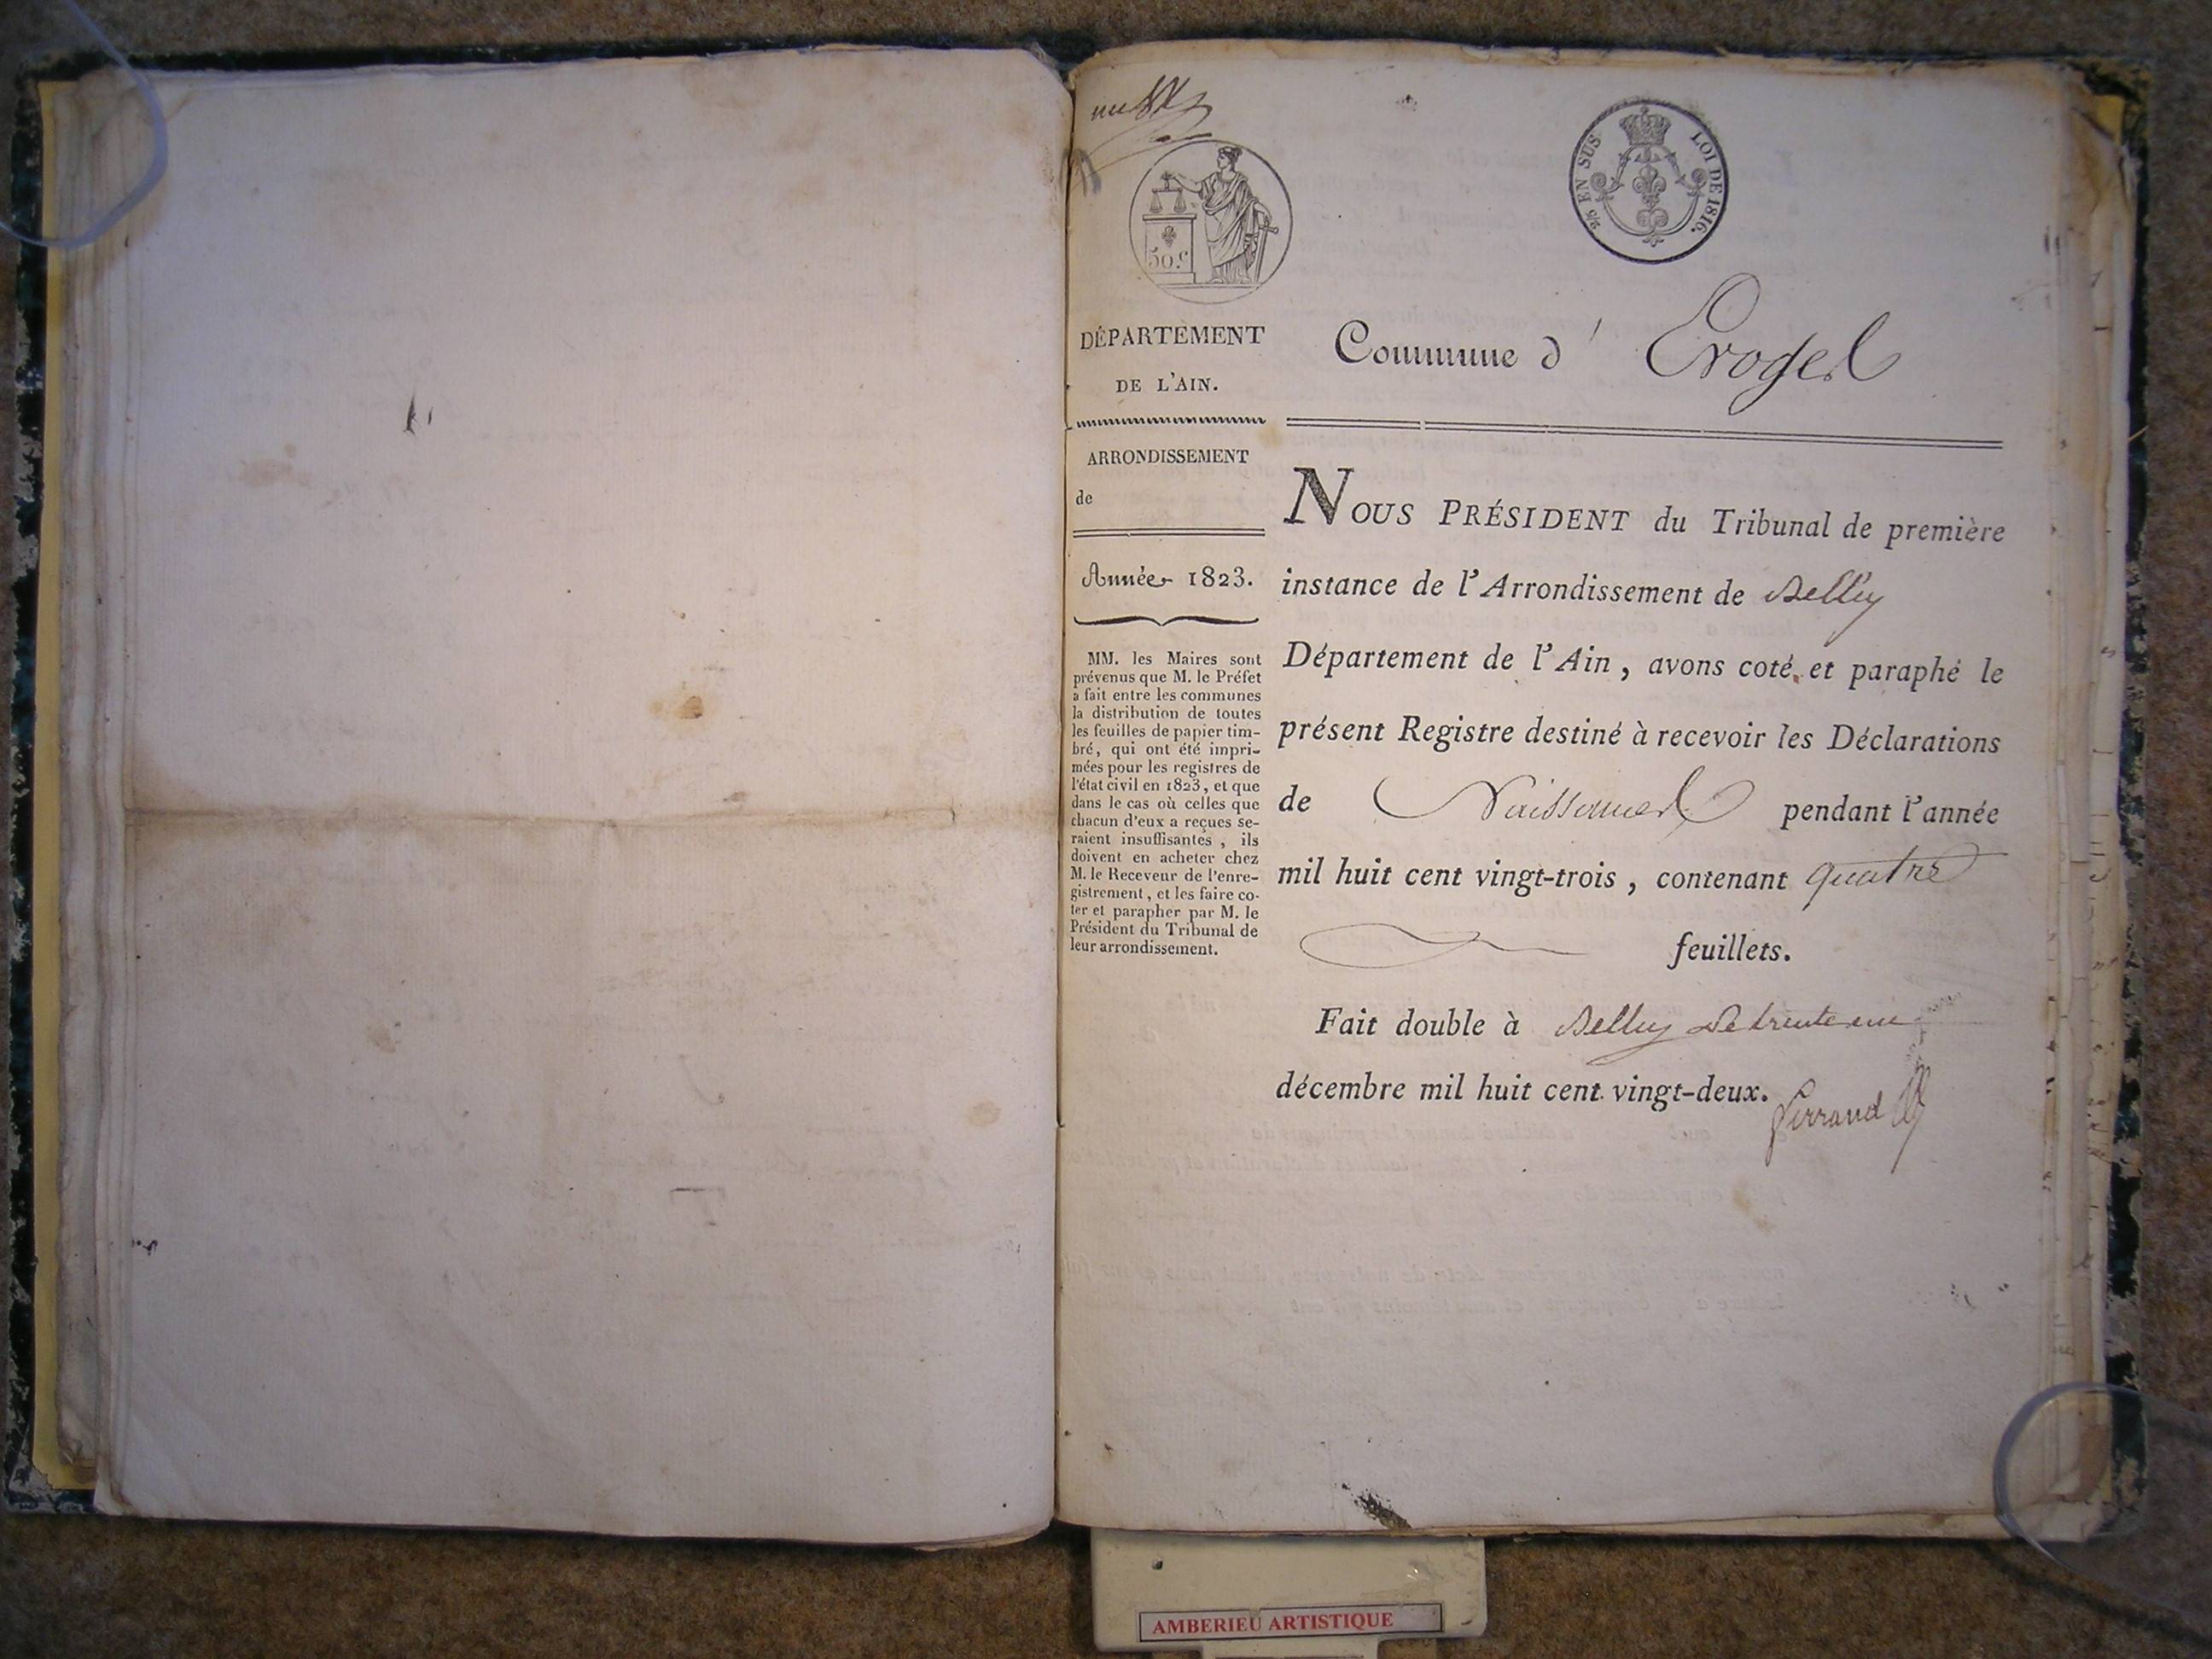 50.c
5/c EN SUS LOI DE 1816.
DÉPARTEMENT
DE L'AIN.
ARRONDISSEMENT
de
Année 1823.
MM. les Maires sont
prévenus que M. le Préfet
a fait entre les communes
la distribution de toutes
les feuilles de papier tim-
bré, qui ont été impri-
mées pour les registres de
l'état civil en 1823, et que
dans le cas où celles que
chacun d'eux a reçues se-
raient insuffisantes, ils
doivent en acheter chez
M. le Receveur de l'enre-
gistrement, et les faire co-
ter et parapher par M. le
Président du Tribunal de
leur arrondissement.
Commune d' Evoges
NOUS PRÉSIDENT du Tribunal de première
instance de l'Arrondissement de Belley
Département de l'Ain, avons coté et paraphé le
présent Registre destiné à recevoir les Déclarations
de Naissances pendant l'année
mil huit cent vingt-trois, contenant quatre
feuillets.
Fait double à Belley le trente un
décembre mil huit cent vingt-deux.
AMBERIEU ARTISTIQUE